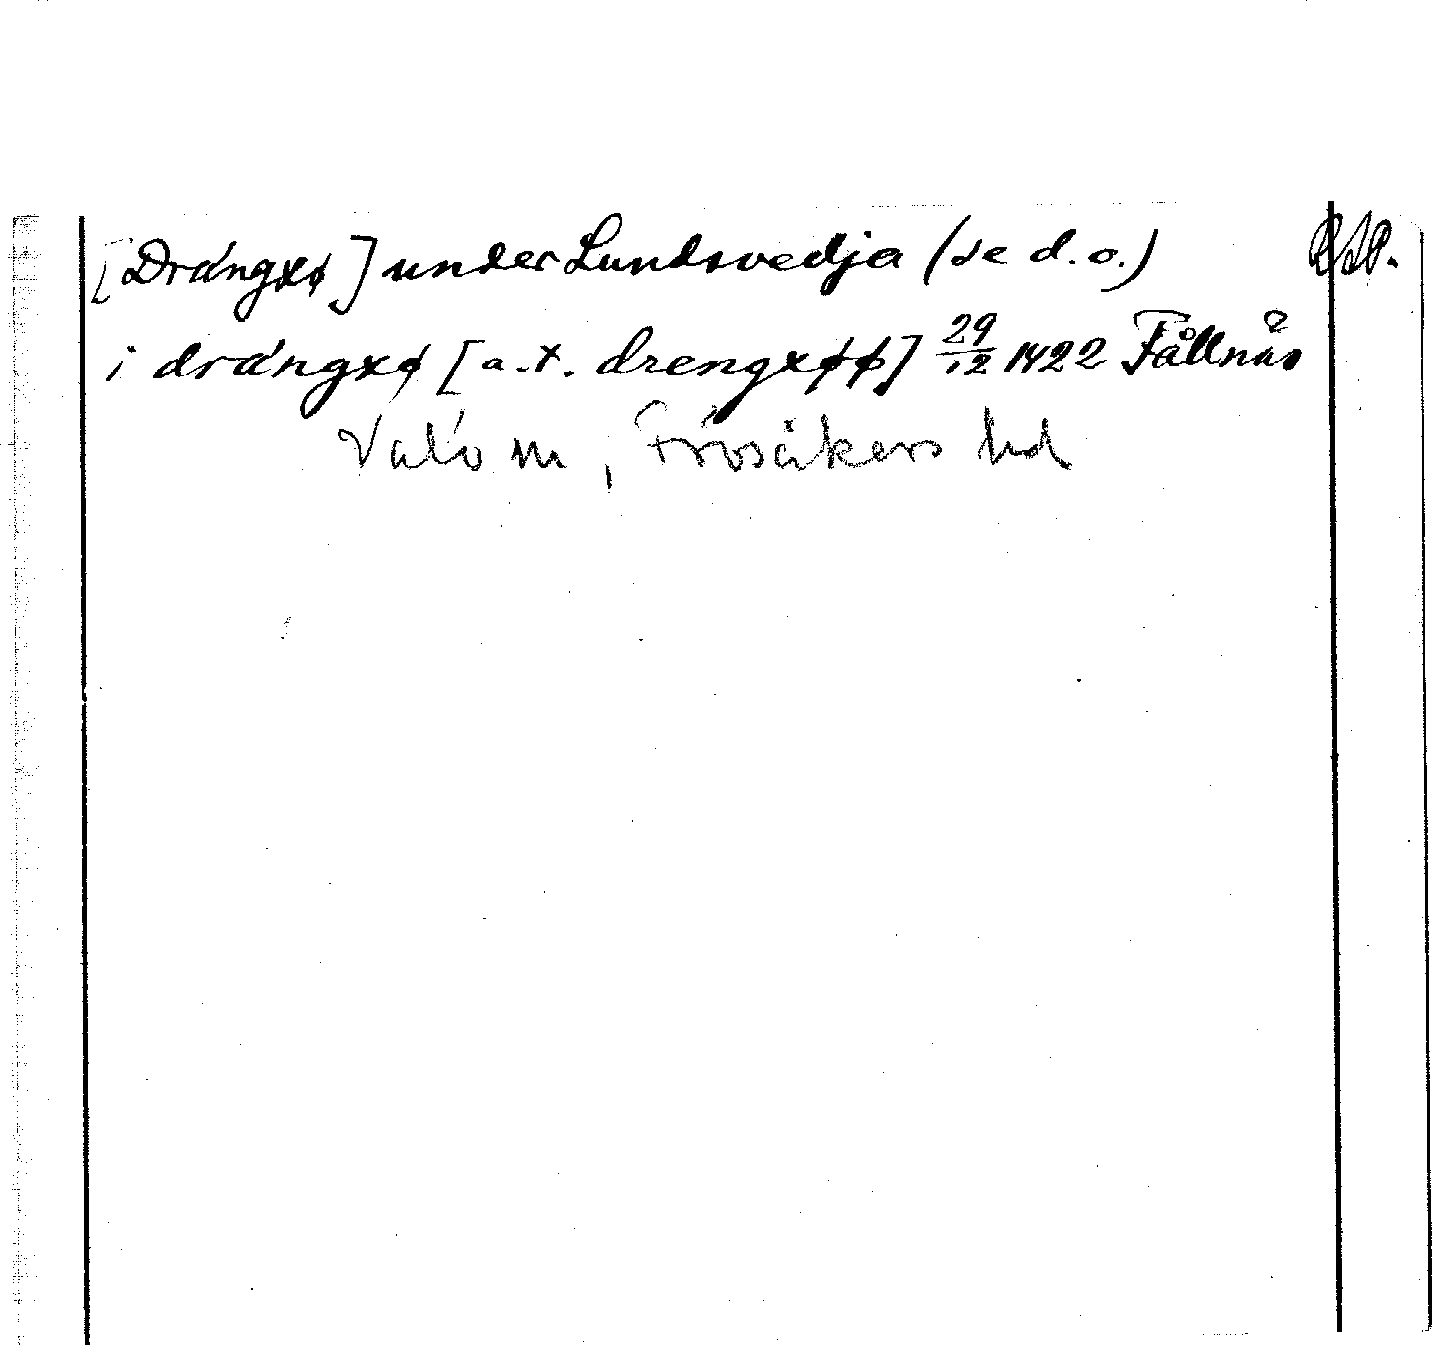 [Drängxø] under Lundsvedja (se d.o.)
i drängxø [a.t. drengxøø] 29/12 1422 Fållnäs
Valö sn, Frösåkers hd